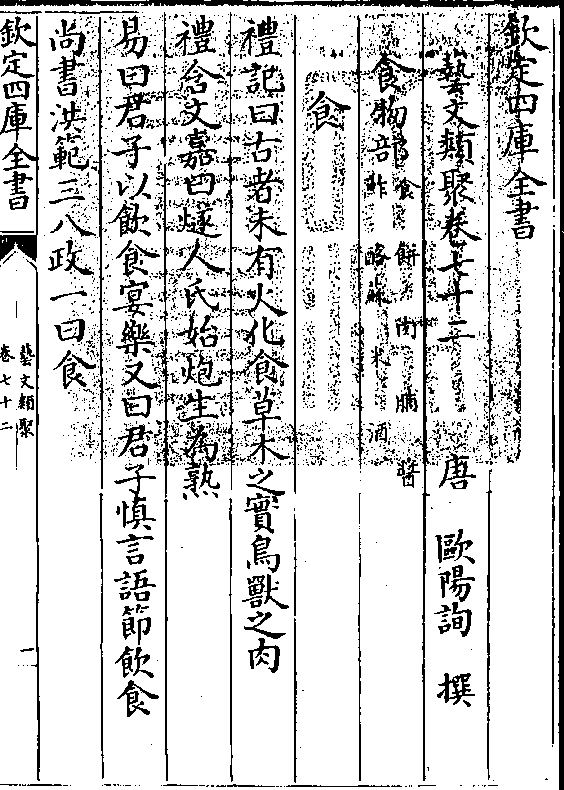 欽定四庫全書
藝文類聚卷七十二
唐 歐陽詢 撰
食物部 食 餅 肉 脯 醬
鮓 酪蘇 米 酒
食
禮記曰古者未有火化食草木之實鳥獸之肉
禮含文嘉曰燧人氏始炮生為熟
易曰君子以飲食宴樂又曰君子慎言語節飲食
尚書洪範三八政一曰食
欽定四庫全書
藝文類聚
卷七十二
一